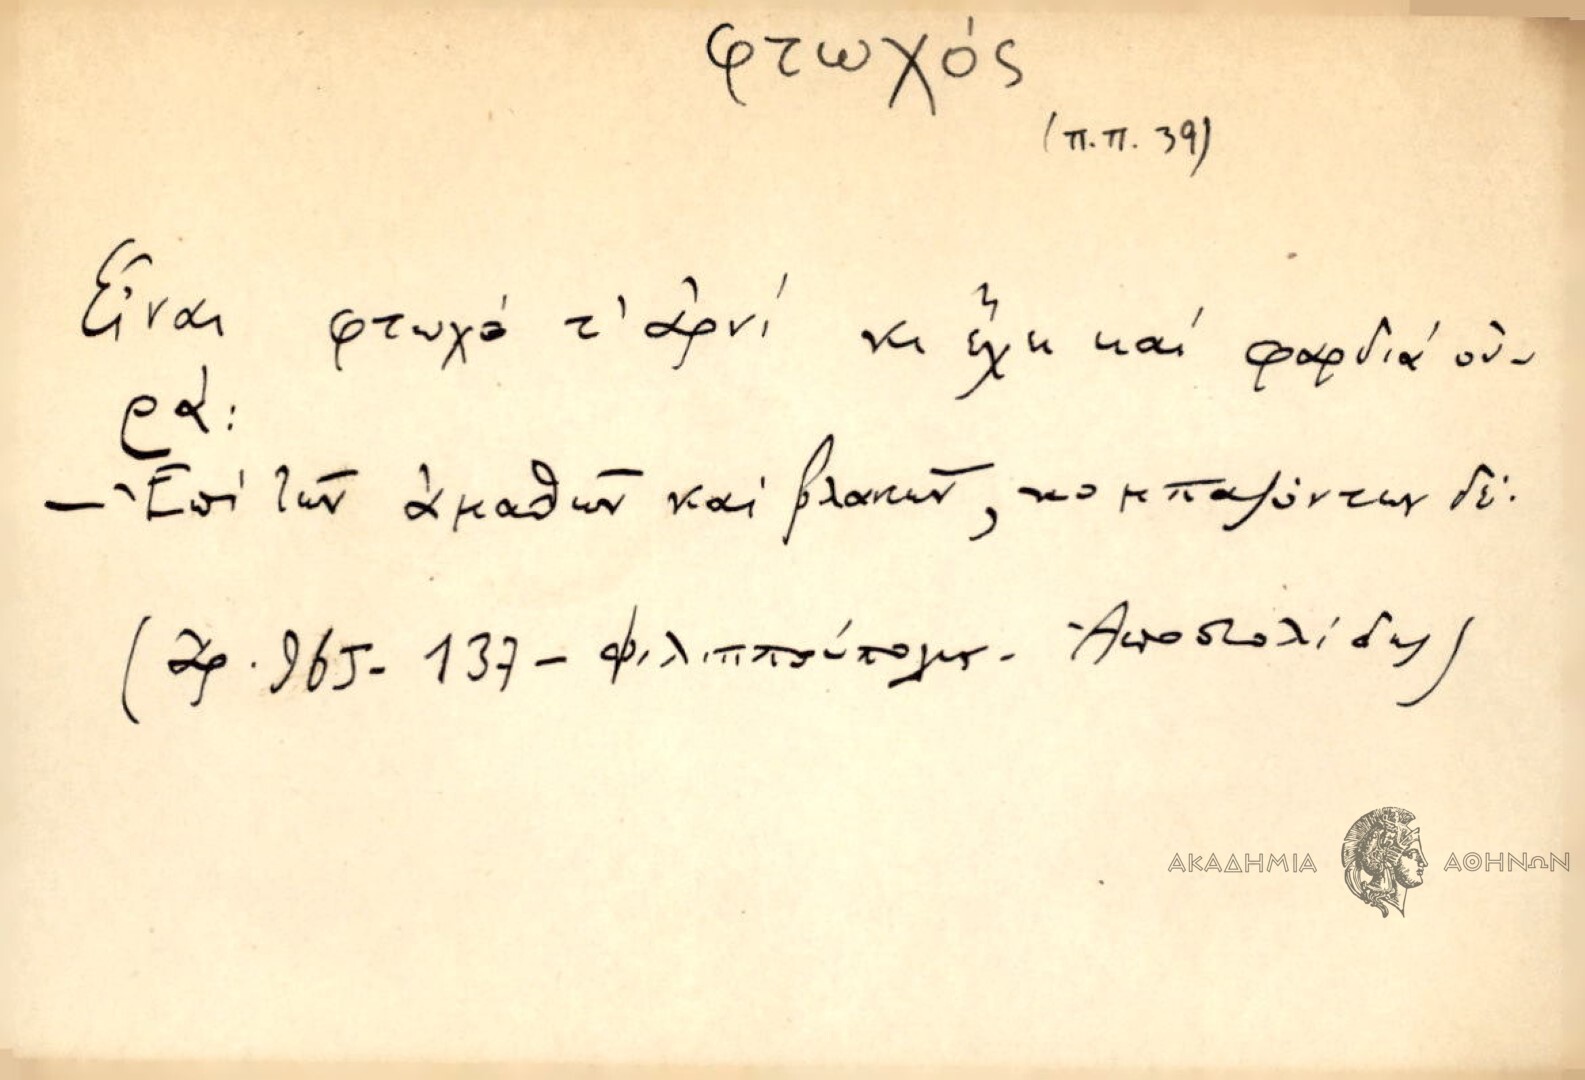 φτωχός
(π.π. 39)
Εἶναι φτωχό τ' ἀρνί κι ἔχει καί φαρδιά οὐ-
ρά:
— Ἐπί τῶν ἀμαθῶν καί βλακῶν, κομπαζόντων δέ.
(Ἀρ. 965- 137 - Φιλιππούπολις - Ἀποστολίδης)
ΑΚΑΔΗΜΙΑ ΑΘΗΝΩΝ